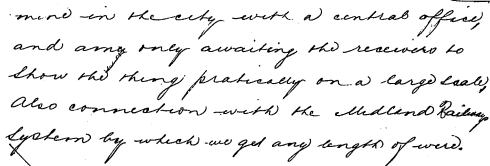 mine in the city with a central office,
and am only awaiting the receivers to
show the thing pratically on a large scale,
Also connection with the Midland Railway
System by which we get any length of wire.